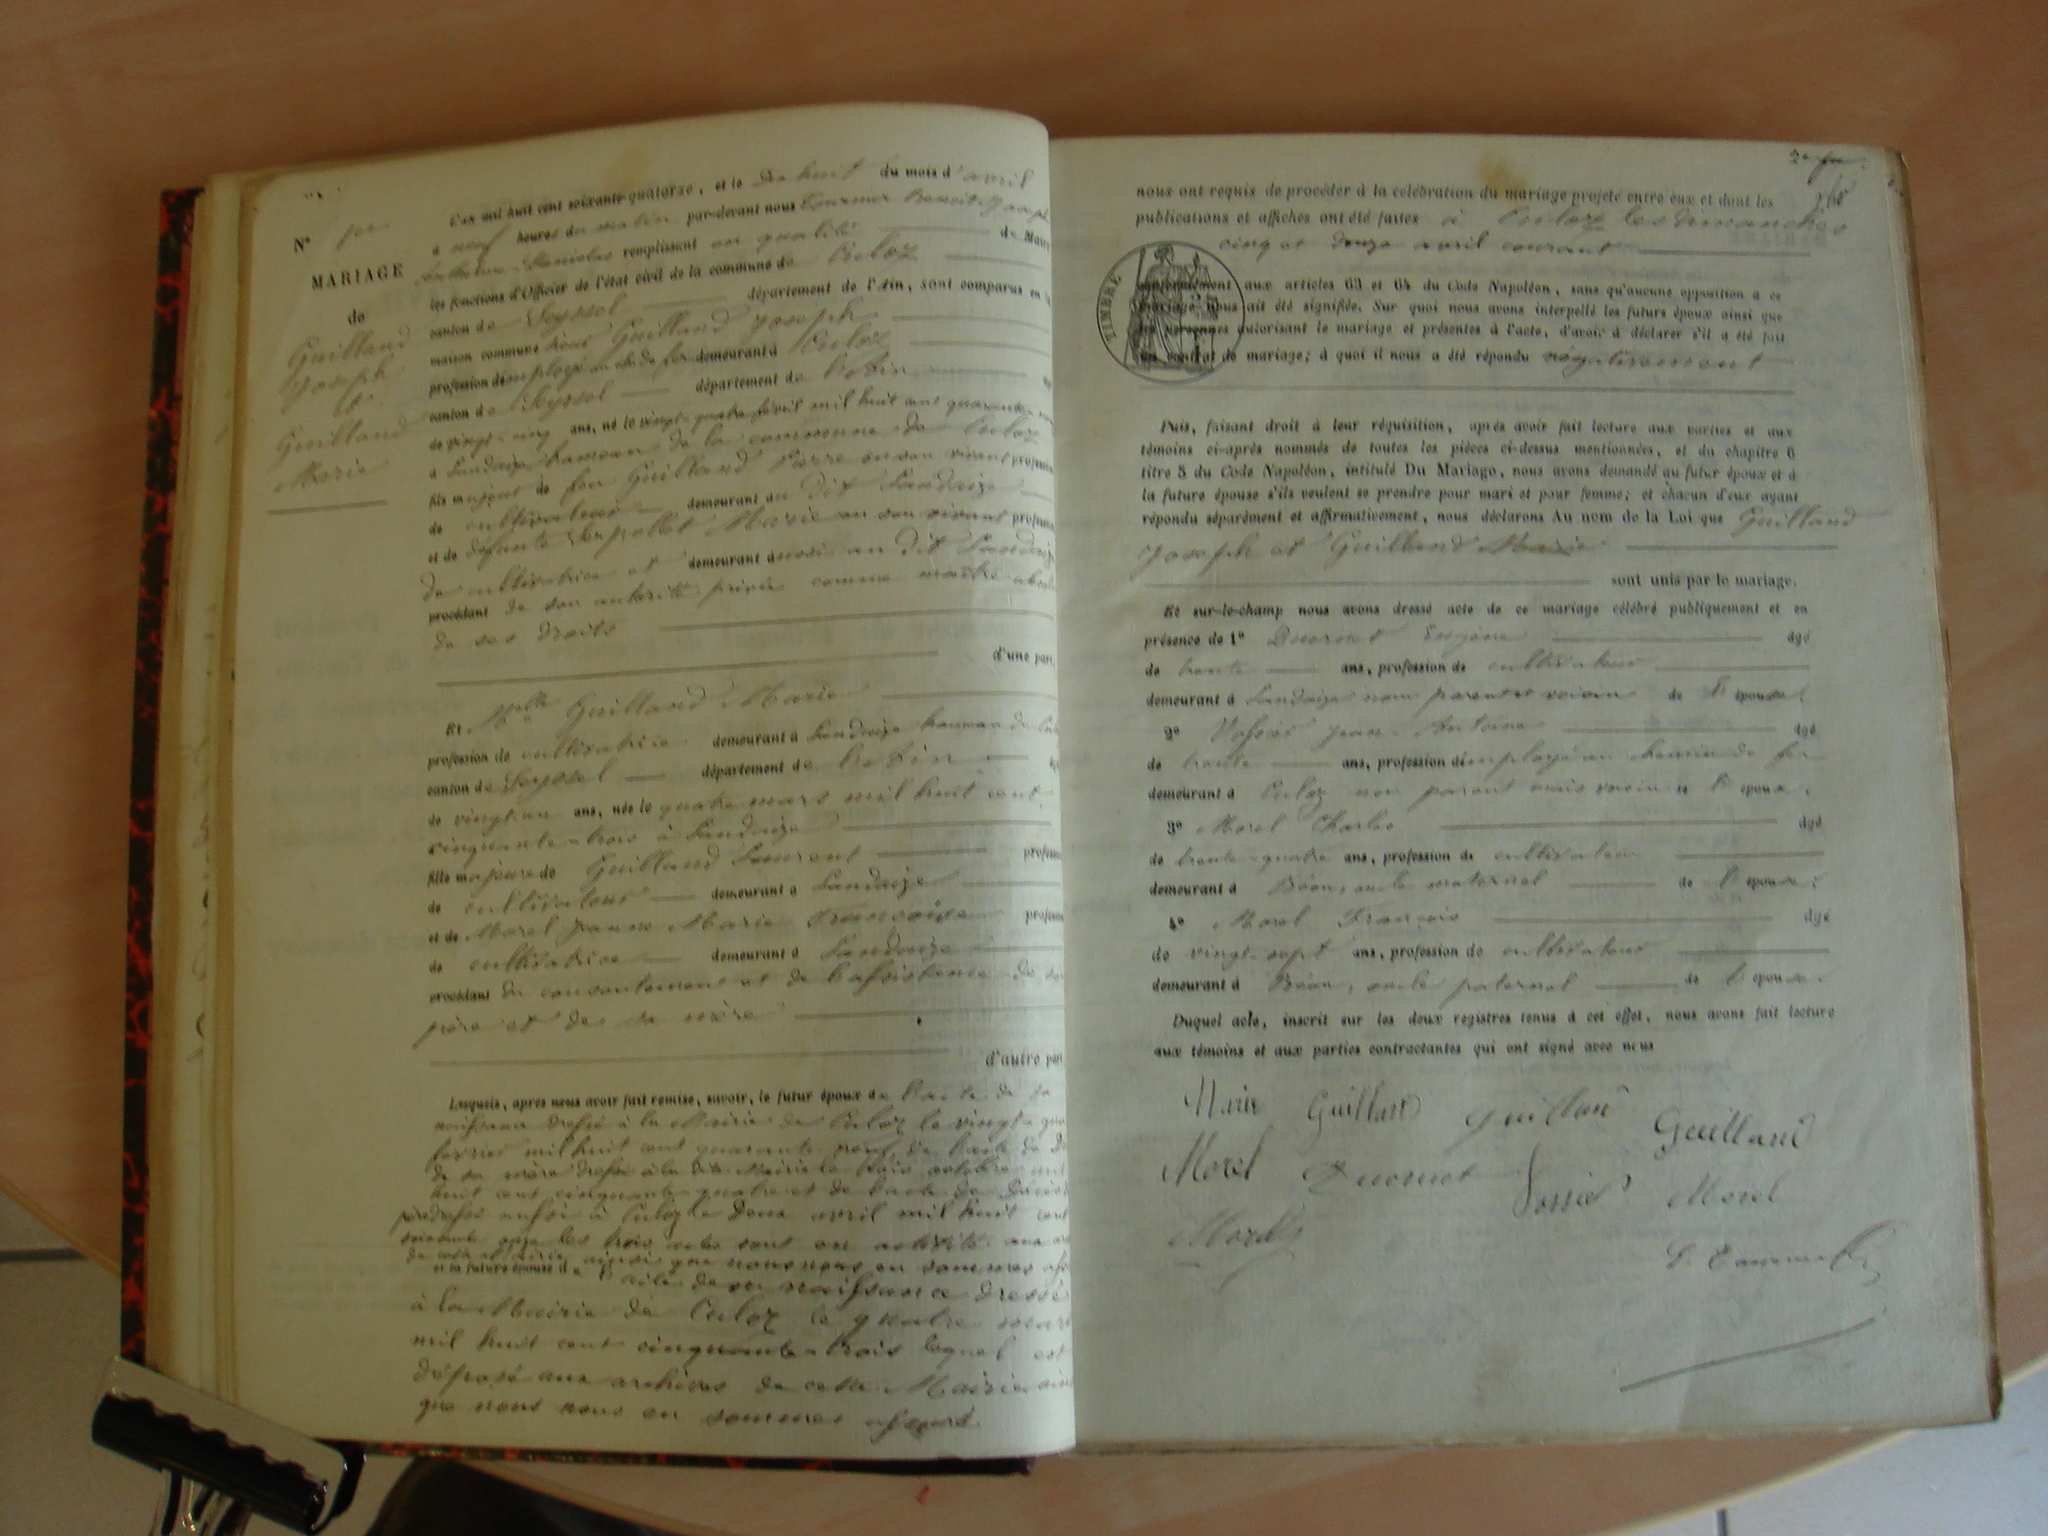 L'an mil huit cent soixante-quatorze, et le dix huit du mois d'avril
à neuf heures du matin par-devant nous Benoit Joseph
Stanislas remplissant en qualité de Maire
les fonctions d'Officier de l'état civil de la commune de Culoz
canton de Seyssel département de l'Ain, sont comparus en la
maison commune Guilland Joseph
profession d'employé au ch. de fer demeurant à Culoz
canton de Seyssel département de l'Ain
de vingt-cinq ans, né le vingt-quatre février mil huit cent quarante-neuf
à Landaize hameau de la commune de Culoz
fils majeur de feu Guilland Pierre en son vivant profession
de cultivateur demeurant au dit Landaize
et de défunte Marie en son vivant profession
de cultivatrice et demeurant aussi au dit Landaize
procédant de son autorité privée comme maître absolu
de ses droits
d'une part,
N° 1er
MARIAGE
de
Guilland
Joseph
et
Guilland
Marie
Et Melle Guilland Marie
profession de cultivatrice demeurant à Landaize hameau de Culoz
canton de Seyssel département de l'Ain
de vingt-un ans, née le quatre mars mil huit cent
cinquante-trois à Landaize
fille majeure de Guilland Laurent profession
de cultivateur demeurant à Landaize
et de Morel Jeanne Marie Françoise profession
de cultivatrice demeurant à Landaize
procédant du consentement et de l'assistance de son
père et de sa mère
d'autre part
Lesquels, après nous avoir fait remise, savoir, le futur époux de l'acte de sa
naissance dressé à la Mairie de Culoz le vingt-quatre
février mil huit cent quarante neuf, de l'acte de décès
de sa mère dressé à la dite Mairie le trois octobre mil
huit cent cinquante-quatre et de l'acte de décès
père dressé aussi à Culoz le deux avril mil huit cent
soixante onze les trois actes sont
de cette Mairie, ainsi que nous nous en sommes assuré
et la future épouse de l'acte de sa naissance dressé
à la Mairie de Culoz le quatre mars
mil huit cent cinquante-trois lequel est
déposé aux archives de cette Mairie ainsi
que nous nous en sommes assuré.
nous ont requis de procéder à la célébration du mariage projeté entre eux et dont les
publications et affiches ont été faites à Culoz les dimanches
cinq et douze avril courant
TIMBRE
conformément aux articles 63 et 64 du Code Napoléon, sans qu'aucune opposition à ce
mariage nous ait été signifiée. Sur quoi nous avons interpellé les futurs époux ainsi que
les personnes autorisant le mariage et présentes à l'acte, d'avoir à déclarer s'il a été fait
un contrat de mariage; à quoi il nous a été répondu négativement
Puis, faisant droit à leur réquisition, après avoir fait lecture aux parties et aux
témoins ci-après nommés de toutes les pièces ci-dessus mentionnées, et du chapitre 6
titre 5 du Code Napoléon, intitulé Du Mariage, nous avons demandé au futur époux et à
la future épouse s'ils veulent se prendre pour mari et pour femme; et chacun d'eux ayant
répondu séparément et affirmativement, nous déclarons Au nom de la Loi que Guilland
Joseph et Guilland Marie
sont unis par le mariage.
Et sur-le-champ nous avons dressé acte de ce mariage célébré publiquement et en
présence de 1° Ducruet Eugène âgé
de trente ans, profession de cultivateur
demeurant à Landaize non parent et voisin de l'épouse;
2° Vassier Jean-Antoine âgé
de trente ans, profession d'employé au chemin de fer
demeurant à Culoz non parent mais voisin de l'époux.
3° Morel Charles âgé
de trente-quatre ans, profession de cultivateur
demeurant à Béon, oncle maternel de l'épouse;
4° Morel François âgé
de vingt-sept ans, profession de cultivateur
demeurant à Béon, oncle paternel de l'épouse.
Duquel acte, inscrit sur les deux registres tenus à cet effet, nous avons fait lecture
aux témoins et aux parties contractantes qui ont signé avec nous
Marie Guilland Guilland Guilland
Morel Ducruet Vassier Morel
Morel